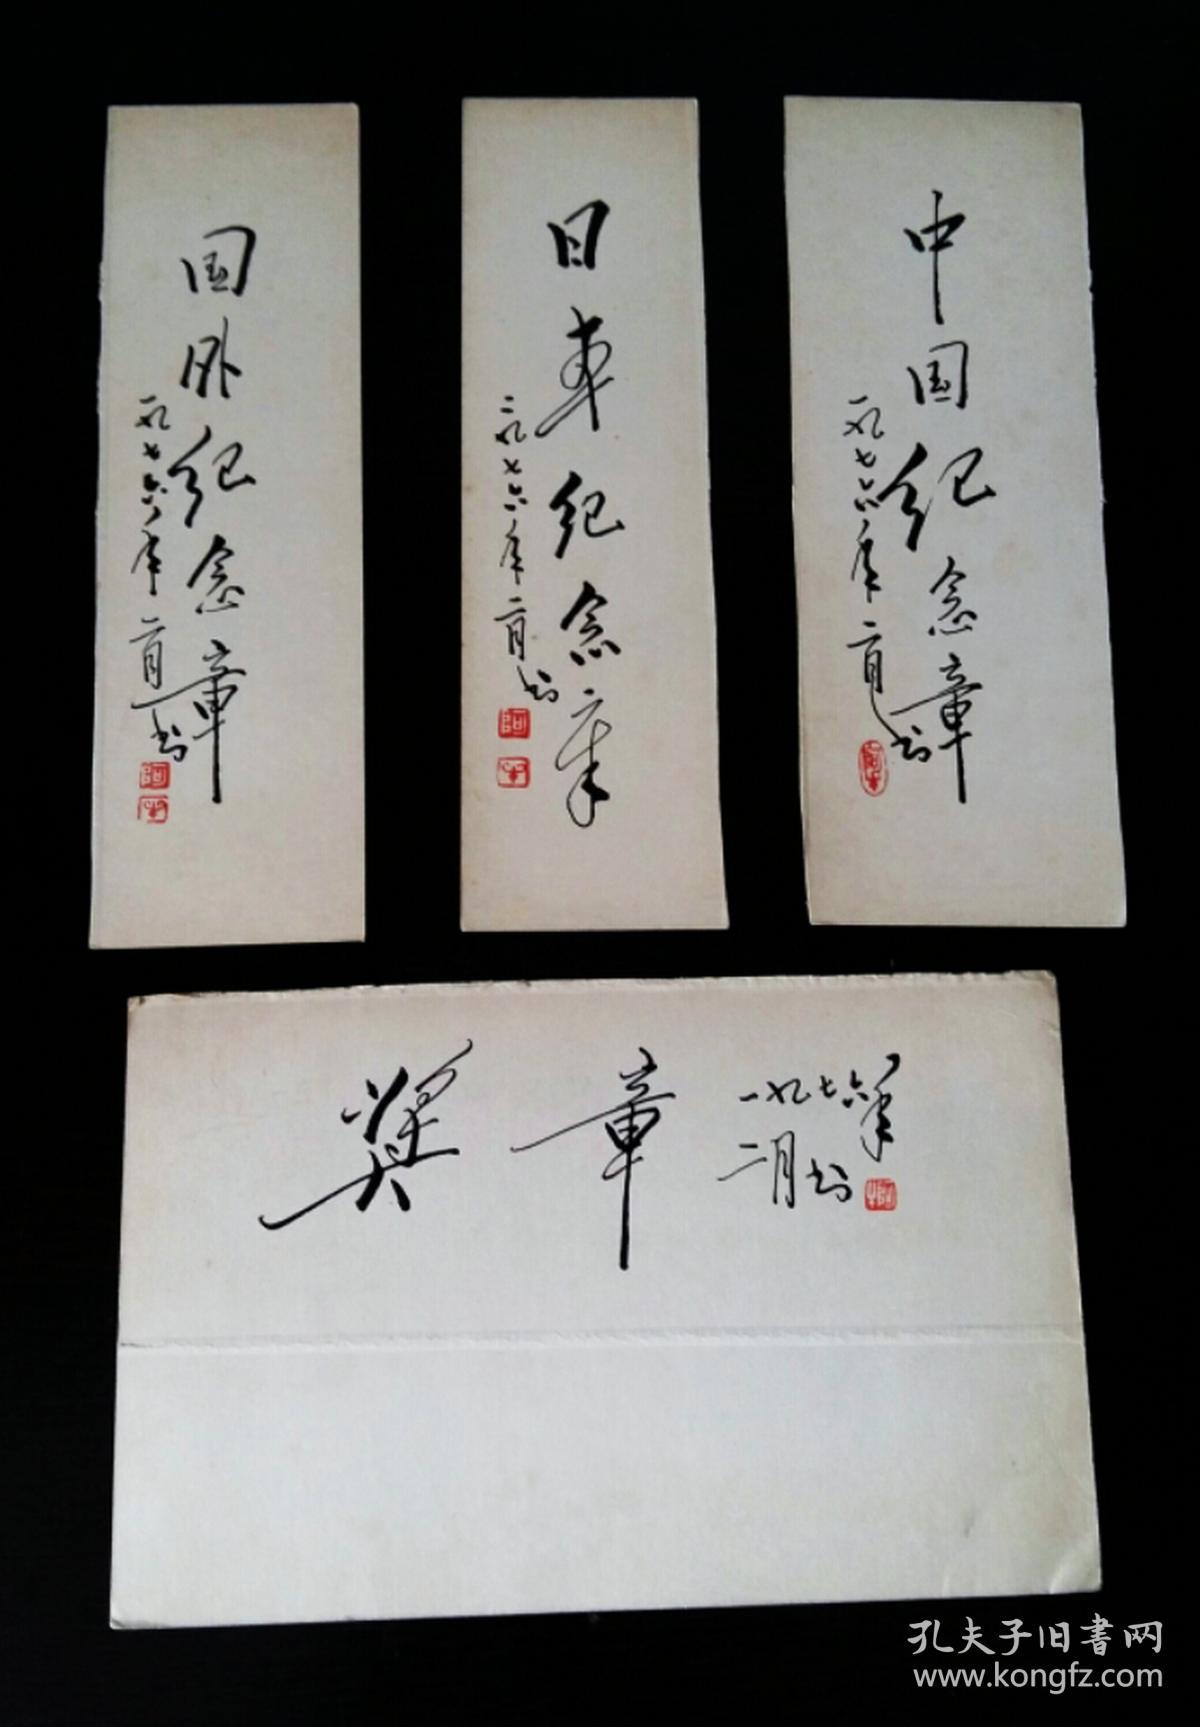 国外纪念章
一九七六年二月书
日本纪念章
一九七六年二月书
中国纪念章
一九七六年二月书
奖章
一九七六年
二月书
孔夫子旧書网
www.kongfz.com